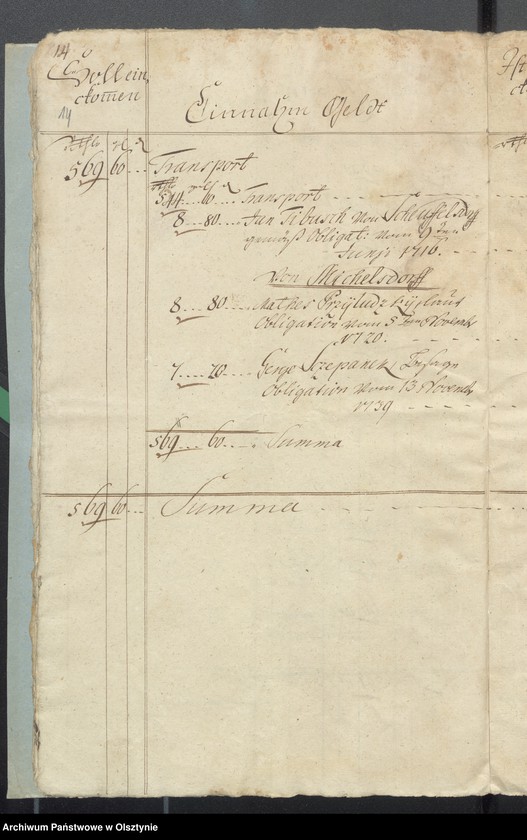 14
Soll ein
kom̄en
14
Einnahm Geldt
569 60 Transport
544 60 Transport
8 80 Jan Tibusch von Scheuffelsdorff
gemäß Obligat: vom 9 ten
Junji 1716.
Von Michelsdorff
8 80 Mathes laut
Obligation vom 3 ten Novembr
1720.
7 20 Szepaneck Besage
Obligation vom 13 Novembr
1739
569 60 Summa
569 60 Summa
Archiwum Państwowe w Olsztynie